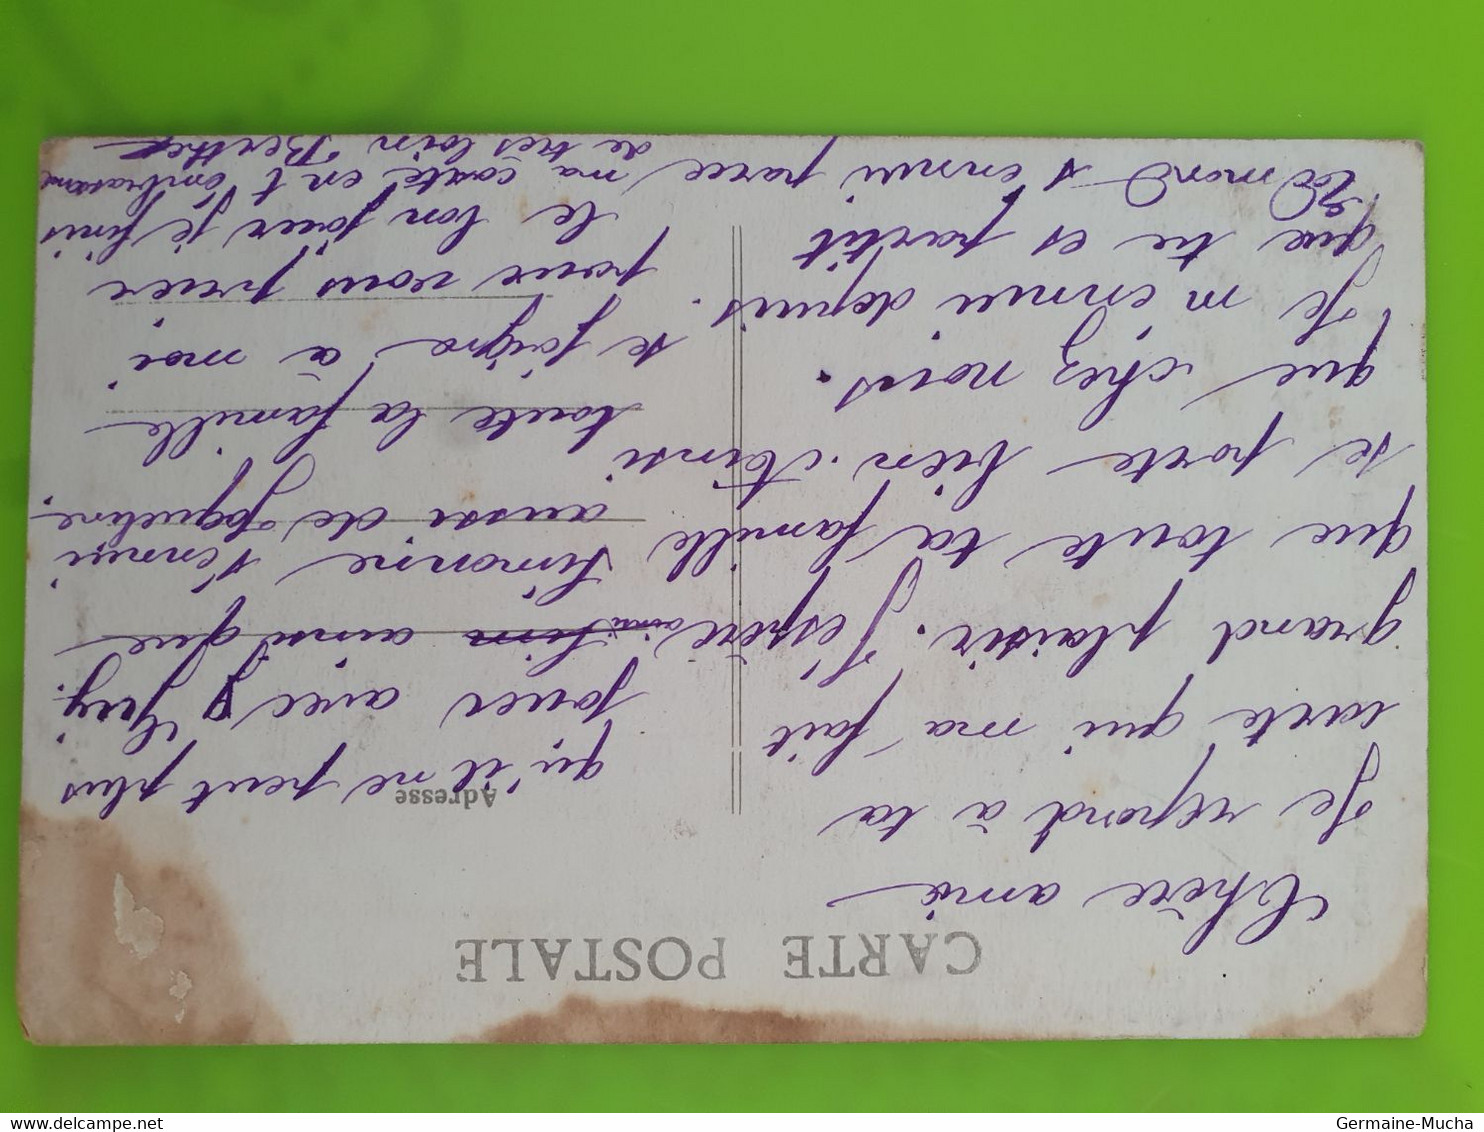 CARTE POSTALE
Adresse
Chère amie
Je repond à ta
carte qui ma fait
grand plaisir. J'espère
que toute ta famille
se porte bien. Ainsi
que chez nous.
Je m ennui depuis.
que tu es partit
Edmond s ennui parce
qu'il ne peut plus
jouer avec Guy.
ainsi que
Simonne s'ennui
aussi de Jaqueline.
toute la famille
se joigne à moi
pour vous
le bon jour je finis
ma carte en t embrassant
de tres loin Berthe
Germaine-Mucha